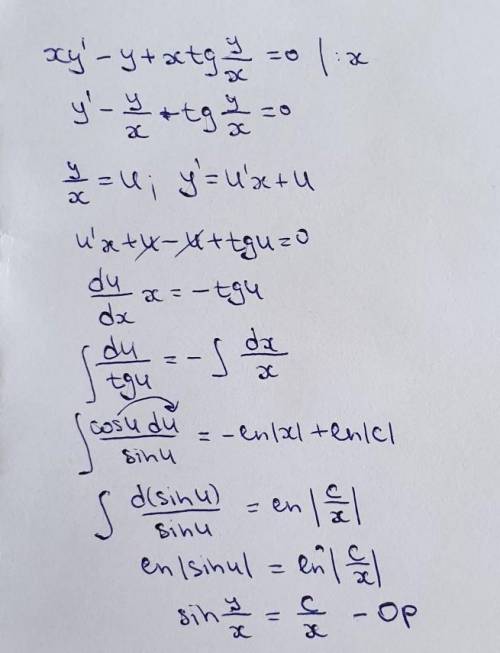 xy' - y + x tg y/x = 0 | : x
y' - y/x + tg y/x = 0
y/x = u; y' = u'x + u
u'x + u - u + tg u = 0
du/dx x = - tg u
∫ du/tg u = - ∫ dx/x
∫ cos u du / sin u = - ln|x| + ln|c|
∫ d(sin u)/sin u = ln |c/x|
ln|sin u| = ln |c/x|
sin y/x = c/x - Op